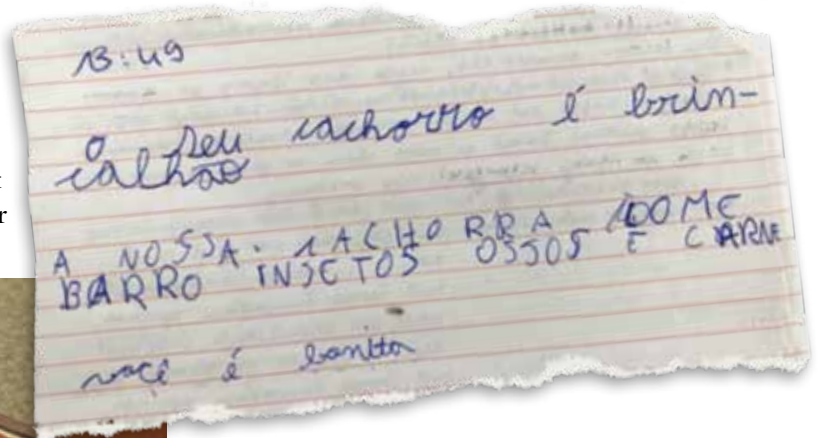 13:49
O seu cachorro é brin-
calhão
A NOSSA. CACHORRA COOME
BARRO INSETOS OSSOS E CARNE
você é bonita